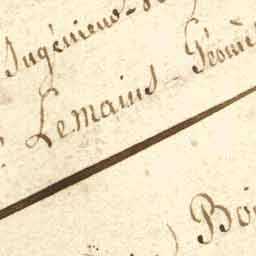 Ingénieur-
Lemains - Géomè
Boi